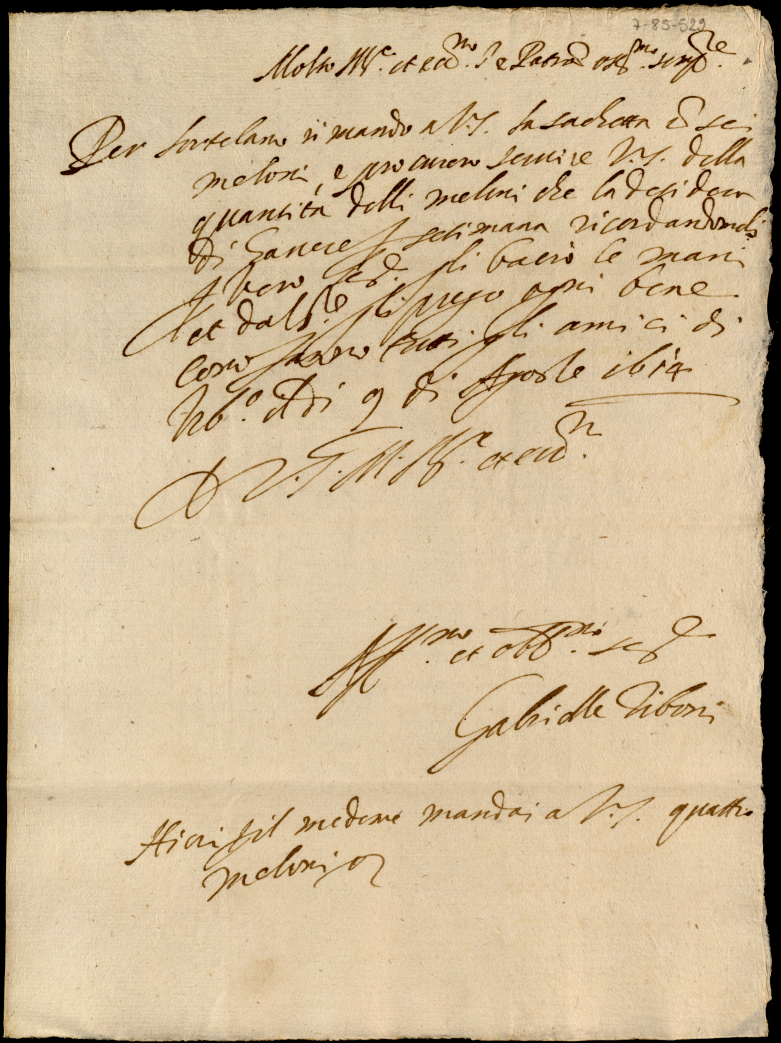 7-85-529
Molto Ill.re et ecc.mo S.r e Patron oss.mo semp.re
Per Sortelano ri mando a V.S. la sachetta con sei
meloni, e procurero servire V.S. della
quantita delli meloni che la desidera
di havere setimana ricordandomeli
vero ser.re gli bacio le mani
et dal S.re gli prego ogni bene
como tutti gli amici di
Adi 9 di Agosto 1614
D V.S. M. Ill.re et ecc.ma
Aff.mo et obb.mo ser.re
Gabrielle Tiboni
Hieri p il medemo mandai a V.S. quattro
meloni